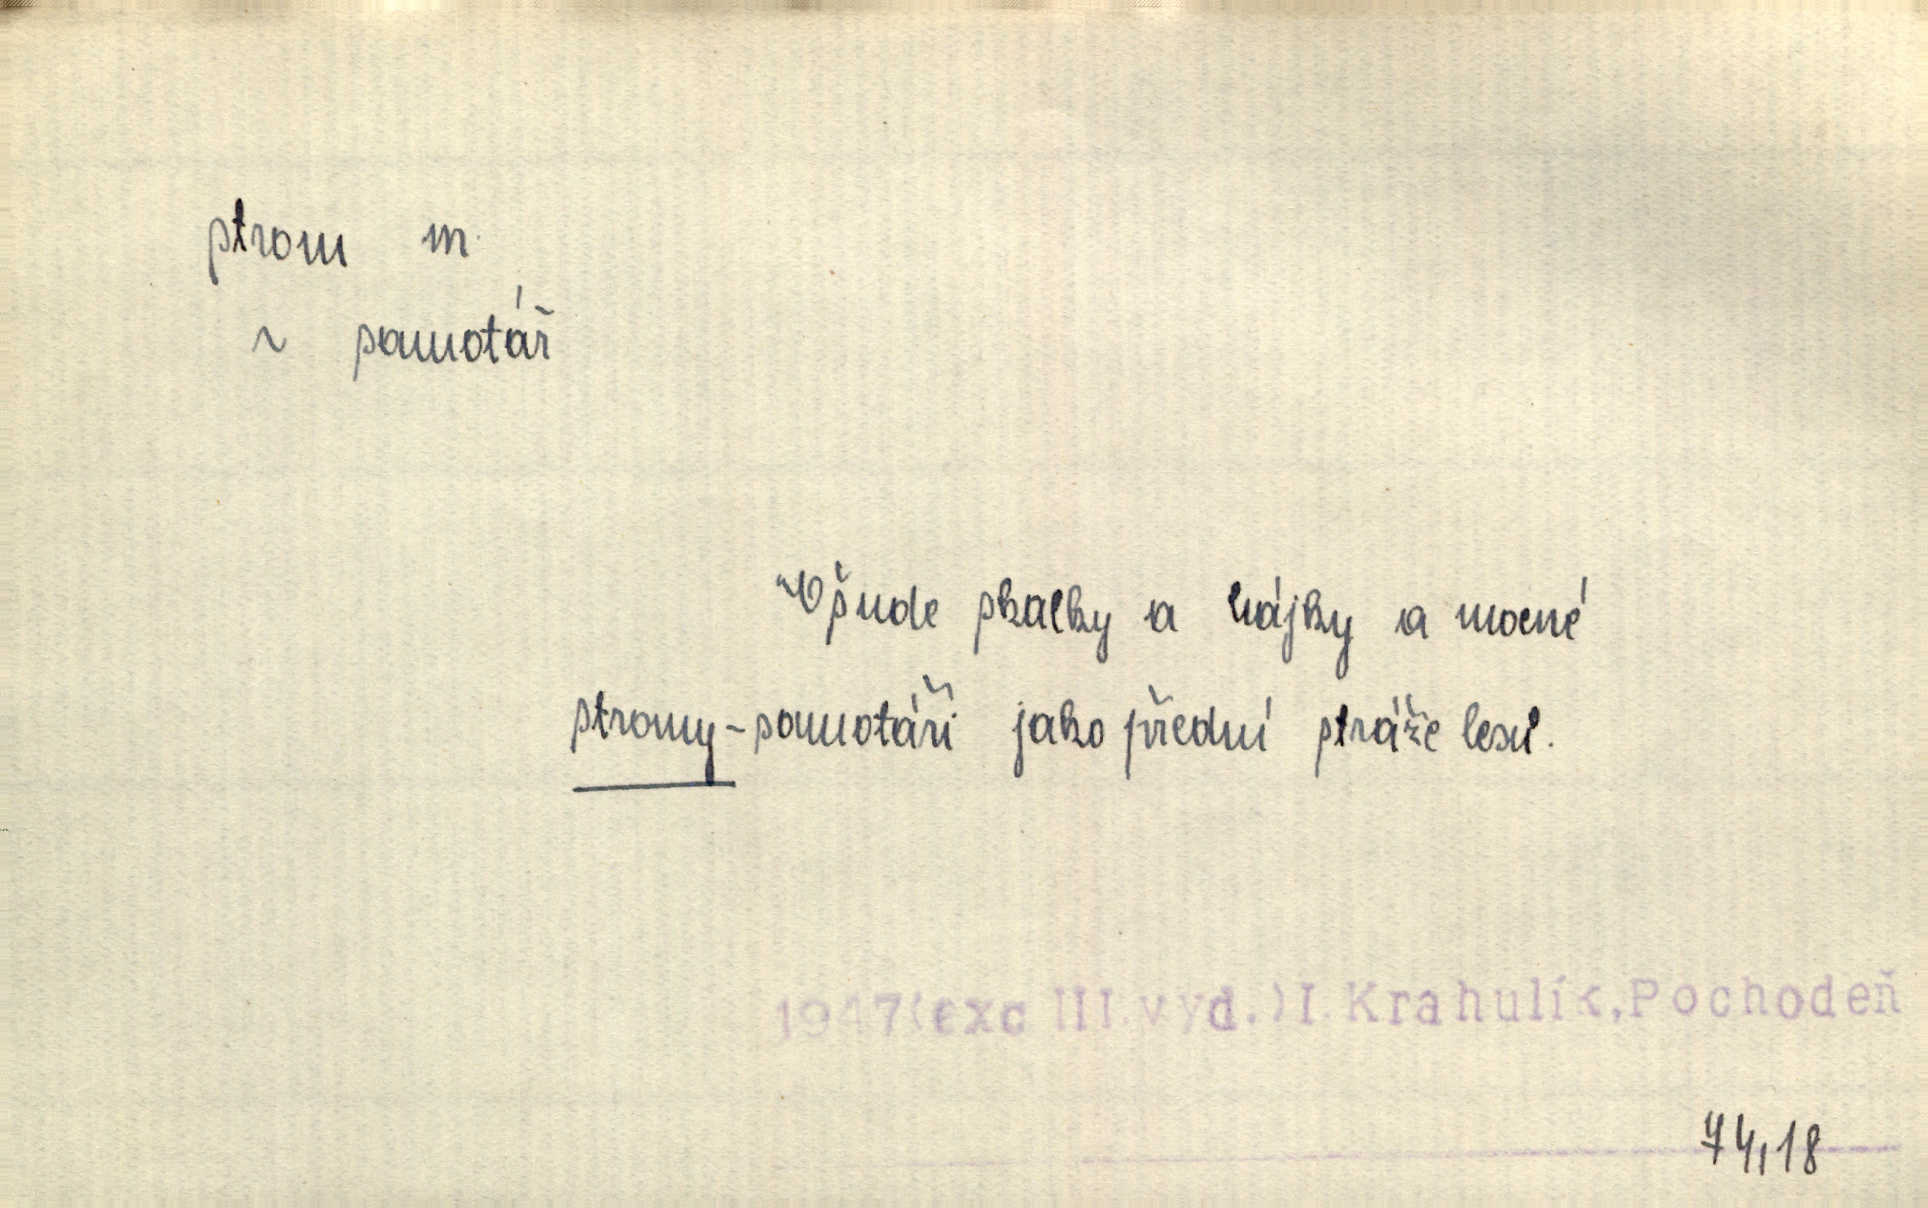 strom m.
~ samotář
Všude skalky a hájky a mocné
stromy-samotáři jako přední stráže lesů.
1947(exc III.vyd.)I.Krahulík,Pochodeň
74,18